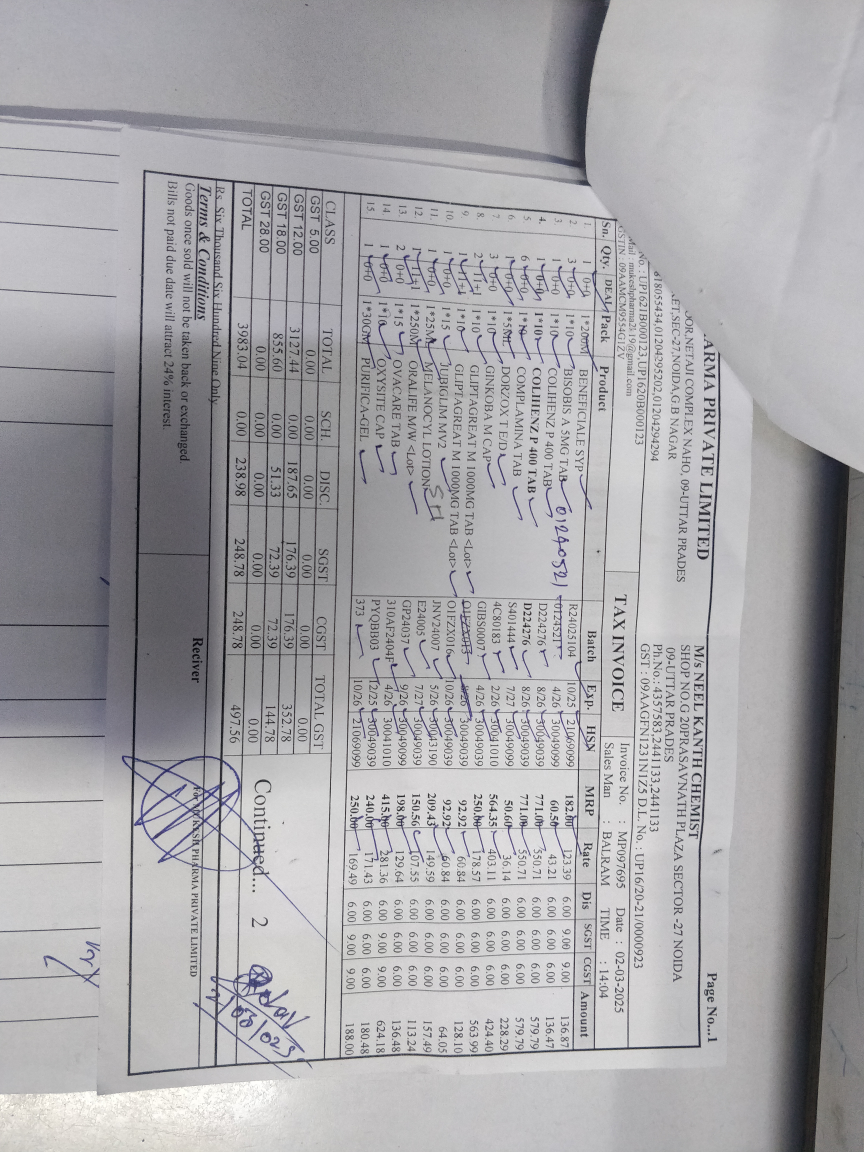 ARMA PRIVATE LIMITED
JOR,NETAJI COMPLEX NAHO, 09-UTTAR PRADES
ET,SEC-27,NOIDA,G.B NAGAR
8178055434,01204295202,01204294294
No. : UP1621B000123,UP1620B000123
mail : mukeshpharma2k19@gmail.com
GSTIN : 09AAMCM9554G1ZV
Page No...1
M/s NEEL KANTH CHEMIST
SHOP NO.G 20PRASAVNATH PLAZA SECTOR -27 NOIDA
09-UTTAR PRADES
Ph.No.: 4357583,2441133,2441133
GST : 09AAGFN1231N1Z5 D.L. No. : UP16/20-21/0000923
TAX INVOICE
Invoice No. : MP097695 Date : 02-03-2025
Sales Man : BALRAM TIME : 14:04
Sn. Qty. DEAL Pack Product Batch Exp. HSN MRP Rate Dis SGST CGST Amount
1. 1 0+0 1*200M BENEFICIALE SYP R24025104 10/25 21069099 182.00 123.39 6.00 9.00 9.00 136.87
2. 3 0+0 1*10 BISOBIS A 5MG TAB 01240521 4/26 30049099 60.50 43.21 6.00 6.00 6.00 136.47
3. 1 0+0 1*10 COLIHENZ P 400 TAB D224276 8/26 30049039 771.00 550.71 6.00 6.00 6.00 579.79
4. 1 0+0 1*10 COLIHENZ P 400 TAB D224276 8/26 30049039 771.00 550.71 6.00 6.00 6.00 579.79
5. 6 0+0 COMPLAMINA TAB S401444 7/27 30049099 50.60 36.14 6.00 6.00 6.00 228.29
6. 1 0+0 1*5ML DORZOX T E/D 4C80183 2/26 30041010 564.35 403.11 6.00 6.00 6.00 424.40
7. 3 0+0 1*10 GINKOBA M CAP GIBS0007 4/26 30049039 250.00 178.57 6.00 6.00 6.00 563.99
8. 2 1+1 1*10 GLIPTAGREAT M 1000MG TAB <Lot> 30049039 92.92 60.84 6.00 6.00 6.00 128.10
9. 1 1+1 1*10 GLIPTAGREAT M 1000MG TAB <Lot> O1FZX016 10/26 30049039 92.92 60.84 6.00 6.00 6.00 64.05
10. 1 0+0 1*15 JUBIGLIM MV2 JNV24007 5/26 30043190 209.43 149.59 6.00 6.00 6.00 157.49
11. 1 0+0 1*25ML MELANOCYL LOTION E24005 7/27 30049039 150.56 107.55 6.00 6.00 6.00 113.24
12. 1 1+1 1*250M ORALIFE M/W <Lot> GP24037 9/26 30049099 198.00 129.64 6.00 6.00 6.00 136.48
13. 2 0+0 1*15 OVACARE TAB 310AF2404F 4/26 30041010 415.00 281.36 6.00 9.00 9.00 624.18
14. 1 0+0 1*10 OXYSITE CAP PYQBB03 12/25 30049039 240.00 171.43 6.00 6.00 6.00 180.48
15. 1 0+0 1*30GM PURIFICA-GEL 373 10/26 21069099 250.00 169.49 6.00 9.00 9.00 188.00
CLASS TOTAL SCH. DISC. SGST CGST TOTAL GST
GST 5.00 0.00 0.00 0.00 0.00 0.00 0.00
GST 12.00 3127.44 0.00 187.65 176.39 176.39 352.78
GST 18.00 855.60 0.00 51.33 72.39 72.39 144.78
GST 28.00 0.00 0.00 0.00 0.00 0.00 0.00
TOTAL 3983.04 0.00 238.98 248.78 248.78 497.56
Continued... 2
Rs. Six Thousand Six Hundred Nine Only
Terms & Conditions
Goods once sold will not be taken back or exchanged.
Bills not paid due date will attract 24% interest.
Reciver
For MUKESH PHARMA PRIVATE LIMITED